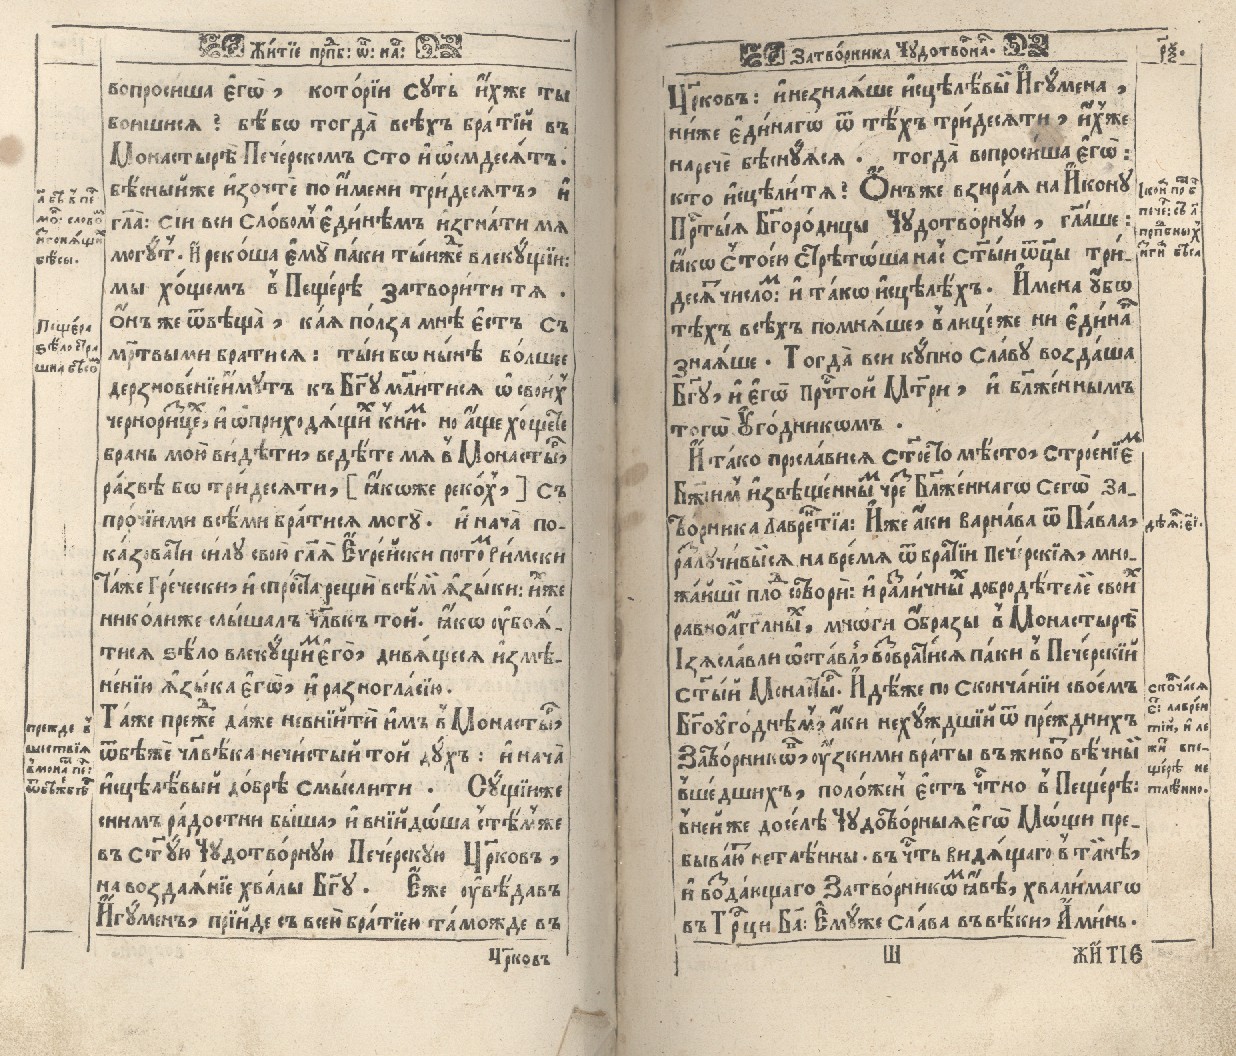 Жи́тїе прпⷣб: ѿ: на́:
вопроси́ша є҆гѡ̀, кото́рїи су́ть и҆́хже ты
боишися? бѣ́ бѡ тогда̀ всѣ́хъ бра́тїй въ
Монастырѣ̀ Пече́рскомъ сто и҆ ѡ҆смдеся́тъ.
бѣ́сныйже и҆зочтѐ по и҆́мени три́десятъ, и҆
гл҃а: сїи вси сло́вомъ є҆ди́нѣмъ изгна́ти мя
могу́тъ. И҆ реко́ша є҆му̀ па́ки ты́и҆же влеку́щїи:
мы хо́щемъ в̾ Пеще́рѣ затвори́ти тя.
Ѻ҆́нъ же ѿвѣща̀, ка́я по́лза мнѣ̀ є҆́стъ съ
ме́ртвыми бра́тися: ты́и бѡ ны́нѣ бо́лшее
дерзнове́нїе и҆́мутъ къ Бг҃у моли́тися ѡ҆ свои́хъ
чернори́цехъ, и҆ ѡ҆ приходя́щихъ к̾ни́мъ. но а҆́ще хо́щете
брань мою̀ ви́дѣти, веде́те мя в̾ Монасты́рь,
ра́звѣ бѡ три́десяти, [ ꙗ҆́коже реко́хъ, ] съ
про́чїими всѣ́ми бра́тися могу̀. и҆ нача̀ по-
ка́зовати си́лу свою̀ гл҃я Є҆вре́йски пото́мъ Ри́мски
Та́же Гре́чески, и҆ спро́ста рещѝ всѣ́ми ꙗ҆зы́ки: и҆́хже
нико́лиже слы́шалъ чл҃вкъ той. ꙗ҆́кѡ оу҆боя́-
тися ѕѣ́ло влеку́щимъ є҆го̀, дивя́щеся и҆змѣ-
не́нїю ꙗ҆зы́ка є҆гѡ̀, и҆ разногла́сїю.
Та́же пре́жде да́же невнїи́ти и҆́мъ в̾ Монасты́рь,
ѿбѣ́же ѿ чл҃вѣ́ка нечи́стый той ду́хъ: и҆ нача̀
и҆сцѣлѣ́вый до́брѣ смы́слити. Су́щїиже
сни́мъ ра́достни бы́ша, и҆ внїидо́ша с̾тѣ́мже
въ ст҃у́ю Чудотво́рную Пече́рскую Цр҃ковъ,
на воздая́нїе хва́лы Бг҃у. Є҆́же оу҆вѣ́давъ
И҆гу́менъ, прїи́де съ все́ю бра́тїею та́можде въ
Цр҃ковъ
прежде в̾
Пеще́ра
ѕѣ́ло стра
шна бѣсо́мъ
Затво́рника Чудотво́рна.
Цр҃ковъ: и҆ незна́яше и҆сцѣлѣ́вый И҆гу́мена,
ни́же є҆ди́нагѡ ѿ тѣ́хъ три́десяти, и҆́хже
наречѐ бѣсну́яся. тогда̀ вопроси́ша є҆гѡ̀:
кто и҆сцѣли́ тя? Ѻ҆́нъже взира́я на И҆ко́ну
Прⷭ҇ты́я Бг҃оро́дицы Чудотво́рную, гл҃аше:
ꙗ҆́кѡ с̾ то́ею стрѣто́ша на́съ ст҃ы́и ѿцы̀ три́-
десять число́мъ: и҆ та́кѡ и҆сцѣлѣ́хъ. И҆мена̀ оу҆́бѡ
тѣ́хъ всѣ́хъ помня́ше, в̾ лице́же ни є҆ди́наго
зна́яше. Тогда̀ вси ку́пно сла́ву возда́ша
Бг҃у, и҆ є҆гѡ̀ прⷭ҇чтой Мт҃ри, и҆ бл҃же́ннымъ
тогѡ̀ Оу҆го́дникомъ.
И҆ та́ко просла́вися ст҃о́е то мѣ́сто, строе́нїемъ
Бж҃їимъ и҆звѣще́ннымъ чре́з̾ Бл҃же́ннагѡ сегѡ̀ За-
тво́рника Лавре́нтїа: И҆́же а҆́ки Варна́ва ѿ Па́вла,
разлучи́выйся на вре́мя ѿ бра́тїи пече́рскїя, мно-
жа́йшїй пло́дъ сотвори́: и҆ разли́чных̾ доброде́телей свои́хъ
равноа҆́гг҃лных̾, мно́ги ѻ҆́бразы в̾ Монастырѣ̀
Ізясла́вли ѡ҆ста́вль, возврати́ся па́ки в̾ Пече́рскїй
ст҃ы́й Монасты́рь. И҆дѣ́же по сконча́нїи своѐмъ
Бг҃оуго́днѣмъ, а҆́ки нехуждшїй ѿ пре́жднихъ
Затво́рникѡвъ, оу҆́зкими враты̀ въ живо́тъ вѣ́чный
в̾ше́дшихъ, поло́женъ є҆́стъ че́стно в̾ Пеще́рѣ:
в̾не́йже досе́лѣ Чудотво́рныя є҆гѡ̀ Мо́щи пре-
быва́ютъ нетлѣ́нны. въ че́сть ви́дящаго в̾ та́йнѣ,
и҆ воздаю́щаго Затво́рникѡмъ ꙗ҆́вѣ, хвали́маго
въ Тр҃ци Бг҃а: Є҆му́же сла́ва въ вѣ́ки, А҆ми́нь.
дѣя́:
сконча́ся
Ш
ЖИ́ТІЕ